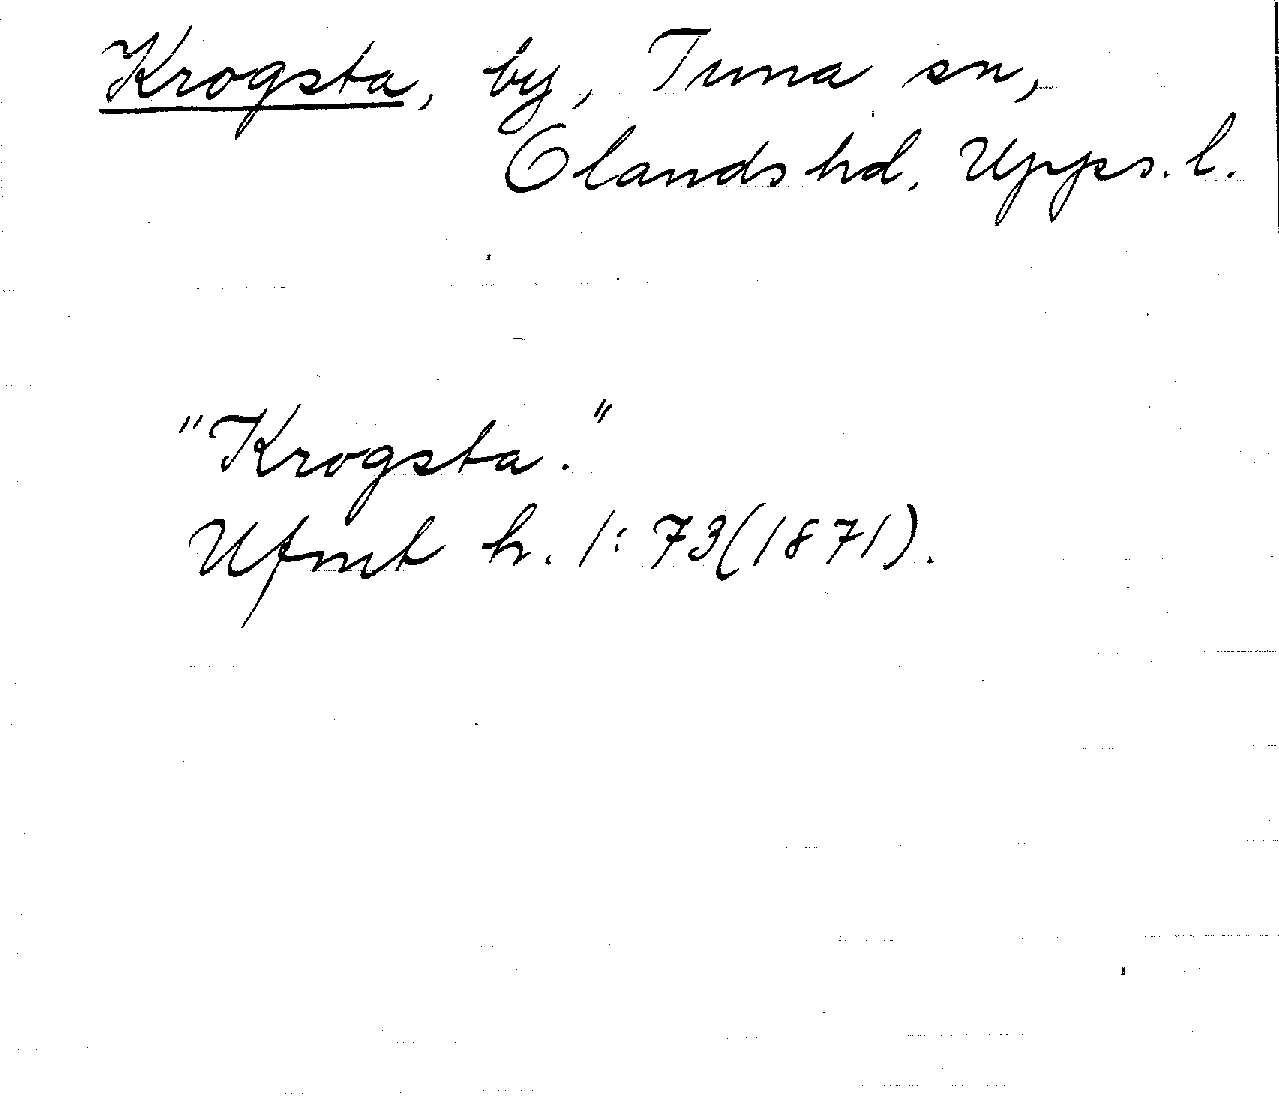 Krogsta, by, Tuna sn,
Olands hd, Upps. l.
"Krogsta."
Ufmt h. 1:73(1871).